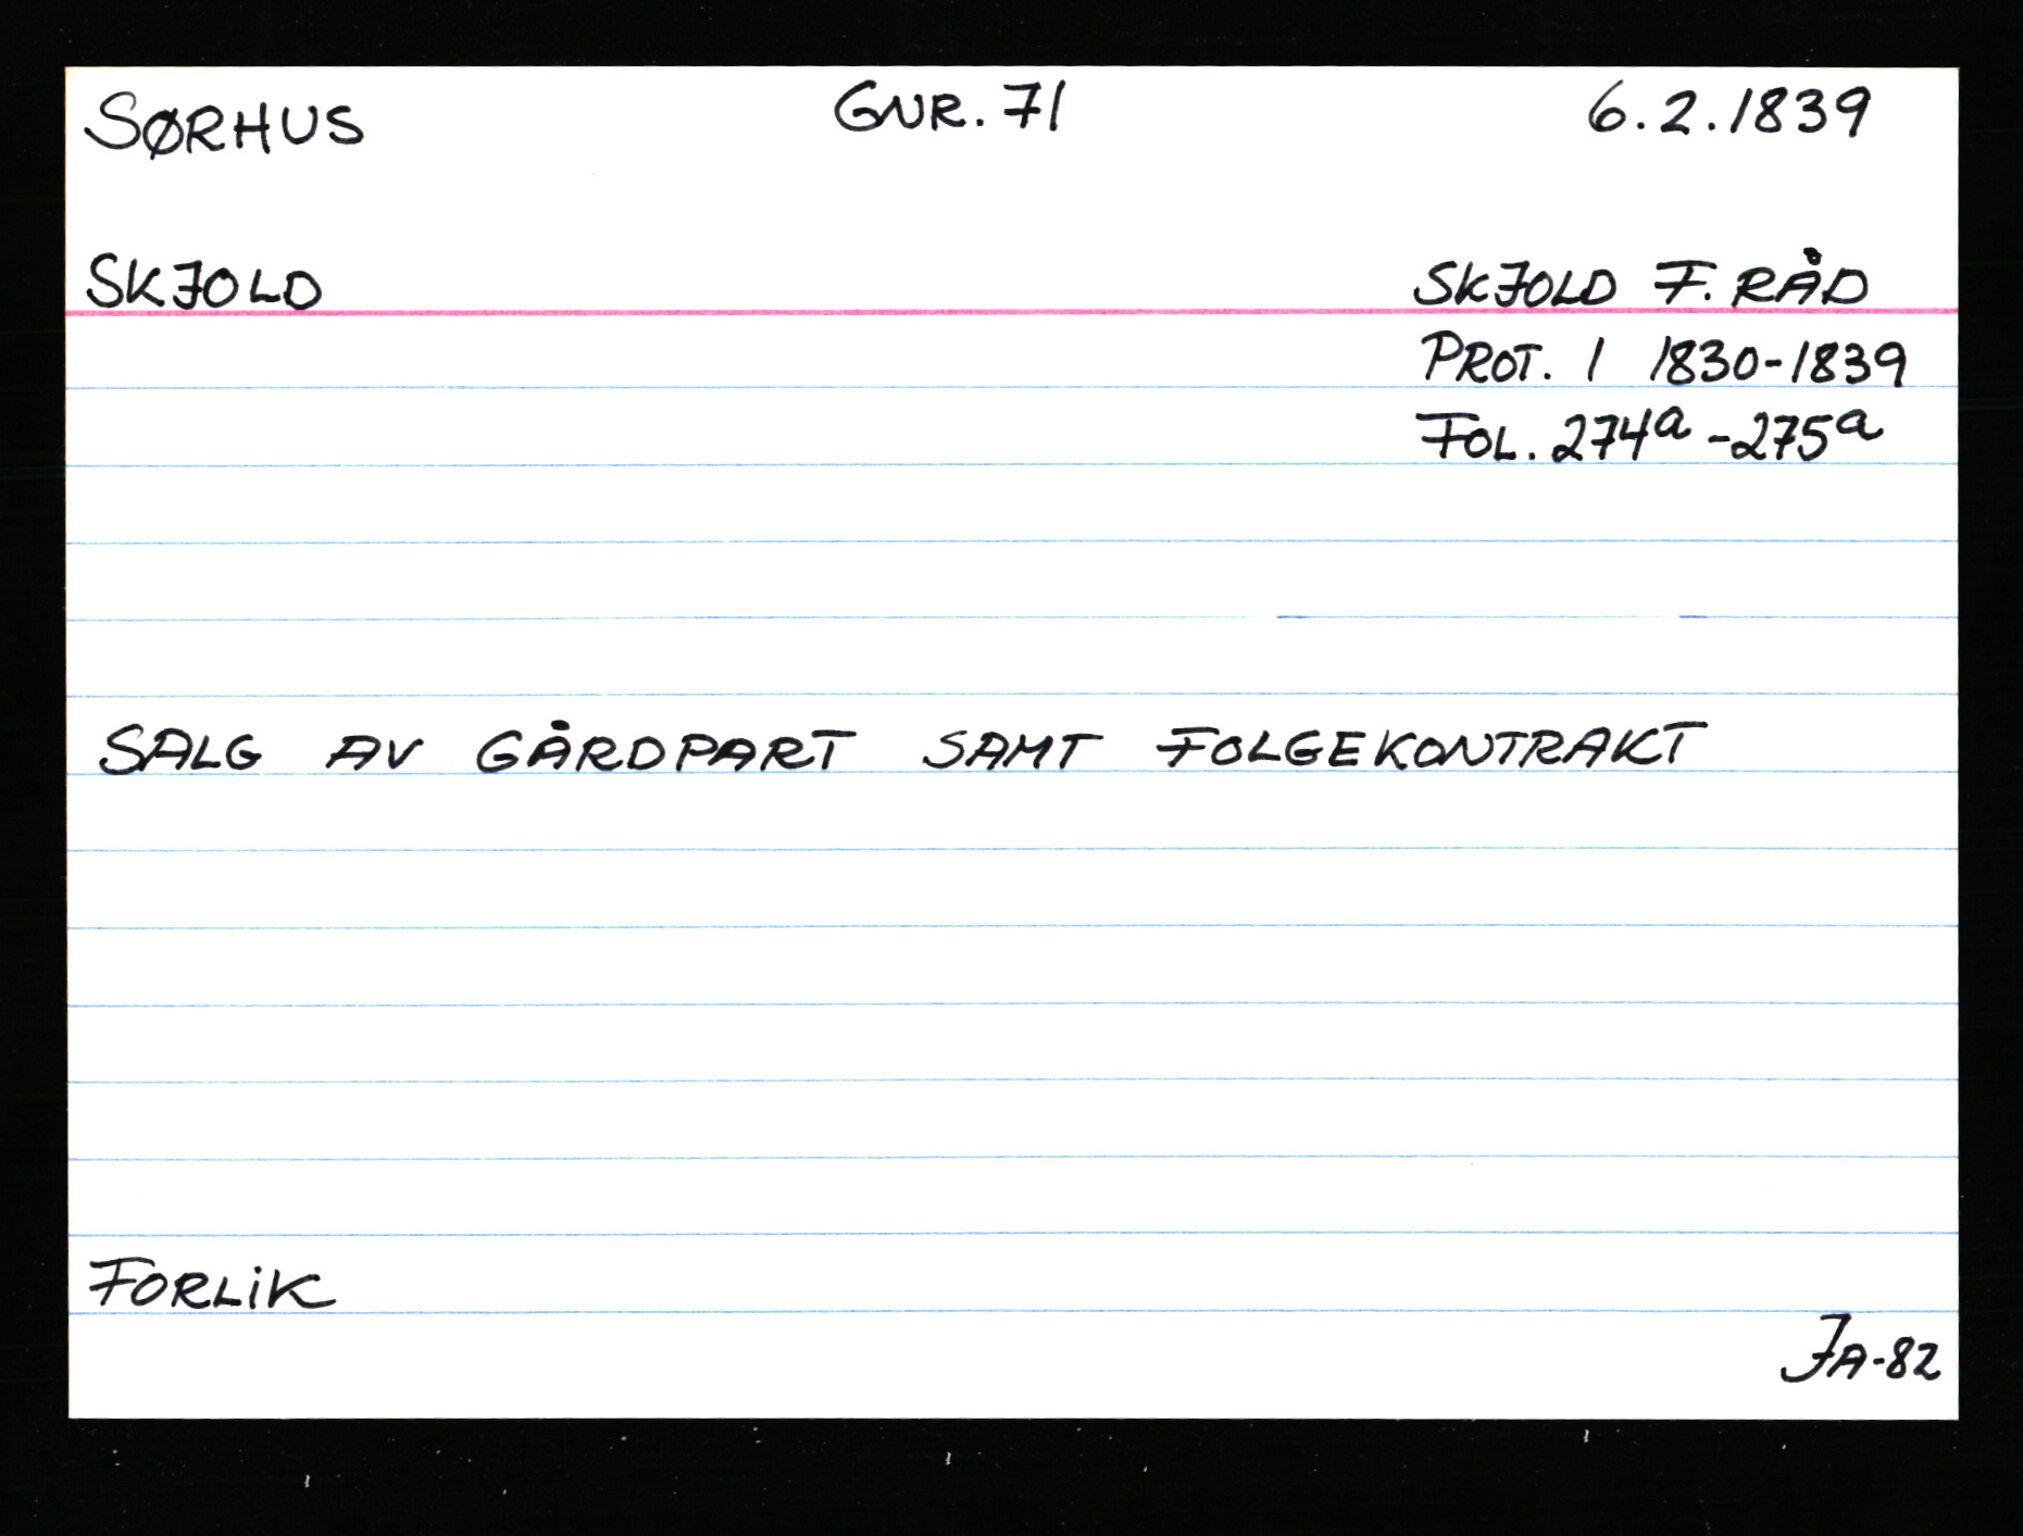 SØRHUS GNR. 71 6.2.1839
SKJOLD SKJOLD F. RÅD
PROT. 1 1830-1839
FOL. 274a - 275a
SALG AV GÅRDPART SAMT FOLGEKONTRAKT
FORLiK
JA-82